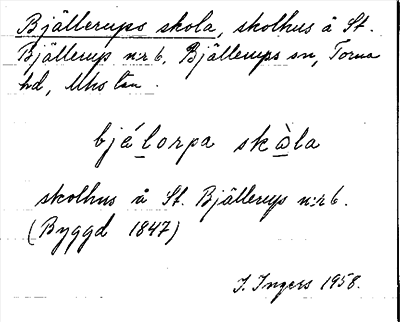 Bjällerups skola, skolhus å St.
Bjällerup n:r 6, Bjällerups sn, Torna
hd, Mhs län.
bjálorpa skàla
skolhus å St. Bjällerup n:r 6.
(Byggd 1847)
I. Ingers 1958.